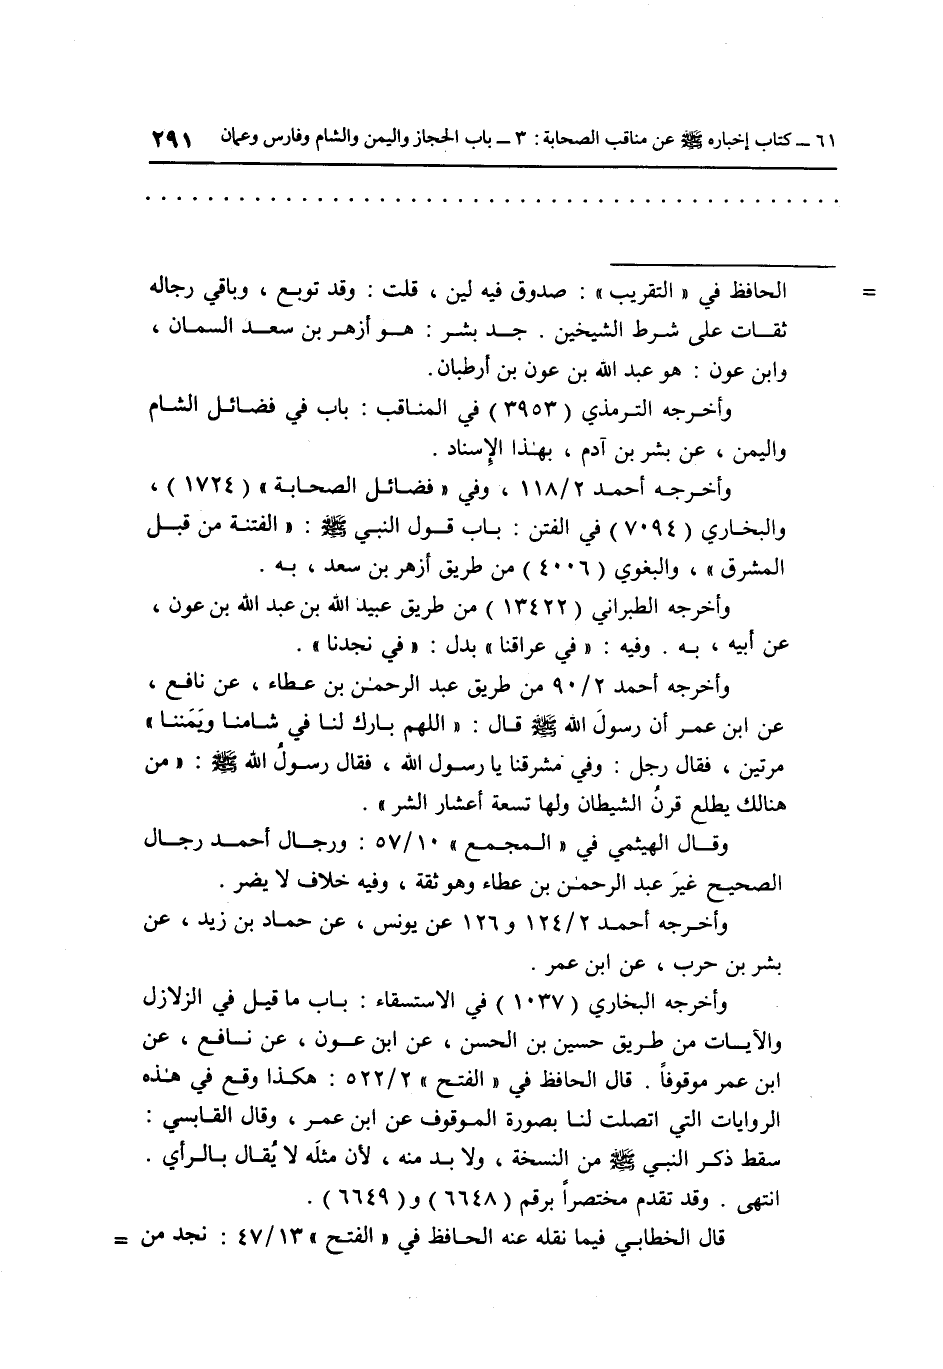 ٦١ ــ كتاب إخباره ﷺ عن مناقب الصحابة : ٣ ــ باب الحجاز واليمن والشام وفارس وعمان ٢٩١
. . . . . . . . . . . . . . . . . . . . . . . . . . . . . . . . . . . . . . . . . .
= الحافظ في « التقريب » : صدوق فيه لين ، قلت : وقد توبع ، وباقي رجاله
ثقات على شرط الشيخين . جد بشر : هو أزهر بن سعد السمان ،
وابن عون : هو عبد الله بن عون بن أرطبان.
وأخرجه الترمذي ( ٣٩٥٣ ) في المناقب : باب في فضائل الشام
واليمن ، عن بشر بن آدم ، بهٰذا الإسناد .
وأخرجه أحمد ١١٨/٢ ، وفي « فضائل الصحابة » ( ١٧٢٤ ) ،
والبخاري ( ٧٠٩٤ ) في الفتن : باب قول النبي ﷺ : « الفتنة من قبل
المشرق » ، والبغوي ( ٤٠٠٦ ) من طريق أزهر بن سعد ، به .
وأخرجه الطبراني ( ١٣٤٢٢ ) من طريق عبيد الله بن عبد الله بن عون ،
عن أبيه ، به . وفيه : « في عراقنا » بدل : « في نجدنا » .
وأخرجه أحمد ٩٠/٢ من طريق عبد الرحمٰن بن عطاء ، عن نافع ،
عن ابن عمر أن رسولَ الله ﷺ قال : « اللهم بارك لنا في شامنا ويَمَننا »
مرتين ، فقال رجل : وفي مشرقنا يا رسول الله ، فقال رسولُ الله ﷺ : « من
هنالك يطلع قرنُ الشيطان ولها تسعة أعشار الشر » .
وقال الهيثمي في « المجمع » ٥٧/١٠ : ورجال أحمد رجال
الصحيح غيرَ عبد الرحمٰن بن عطاء وهو ثقة ، وفيه خلاف لا يضر .
وأخرجه أحمد ١٢٤/٢ و ١٢٦ عن يونس ، عن حماد بن زيد ، عن
بشر بن حرب ، عن ابن عمر .
وأخرجه البخاري ( ١٠٣٧ ) في الاستسقاء : باب ما قيل في الزلازل
والآيات من طريق حسين بن الحسن ، عن ابن عون ، عن نافع ، عن
ابن عمر موقوفاً . قال الحافظ في « الفتح » ٥٢٢/٢ : هكذا وقع في هٰذه
الروايات التي اتصلت لنا بصورة الموقوف عن ابن عمر ، وقال القابسي :
سقط ذكر النبي ﷺ من النسخة ، ولا بد منه ، لأن مثلَه لا يُقال بالرأي .
انتهى . وقد تقدم مختصراً برقم ( ٦٦٤٨ ) و( ٦٦٤٩ ) .
قال الخطابي فيما نقله عنه الحافظ في « الفتح » ٤٧/١٣ : نجد من =